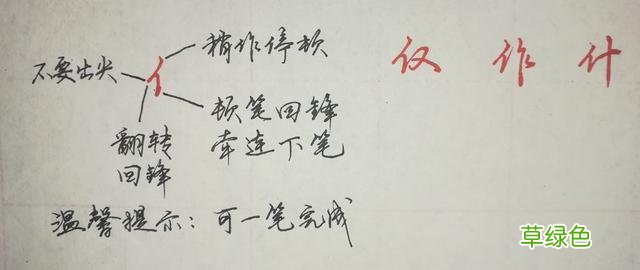 稍作停顿
不要出尖
亻
仅 作 什
顿笔回锋
牵连下笔
翻转
回锋
温馨提示：可一笔完成
草绿色